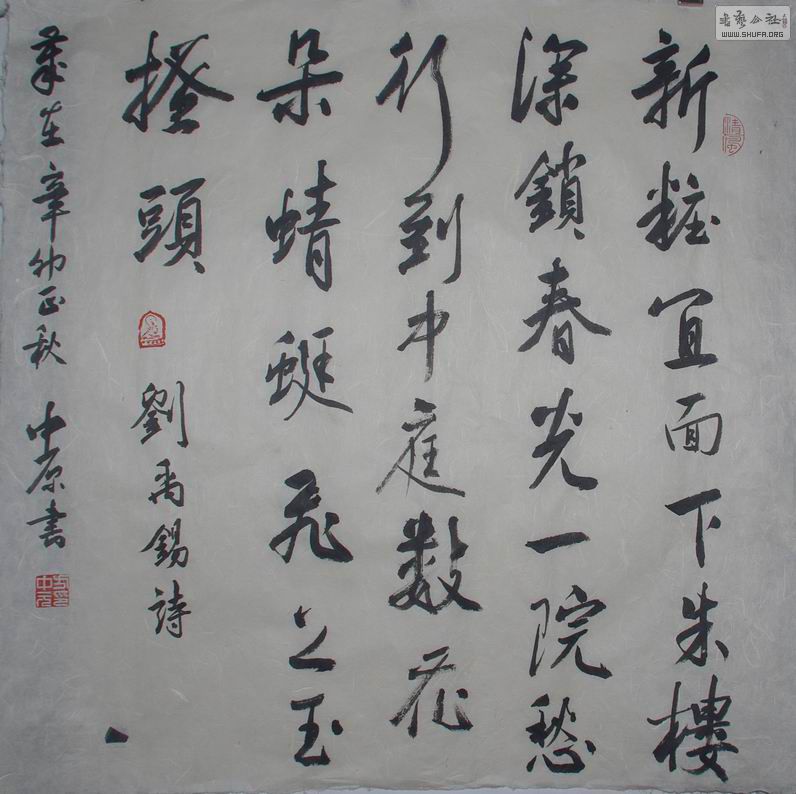 新粧宜面下朱樓
深鎖春光一院愁
行到中庭數花
朵蜻蜓飛上玉
搔頭 劉禹錫詩
歲在辛卯正秋 中原書
书艺公社
WWW.SHUFA.ORG